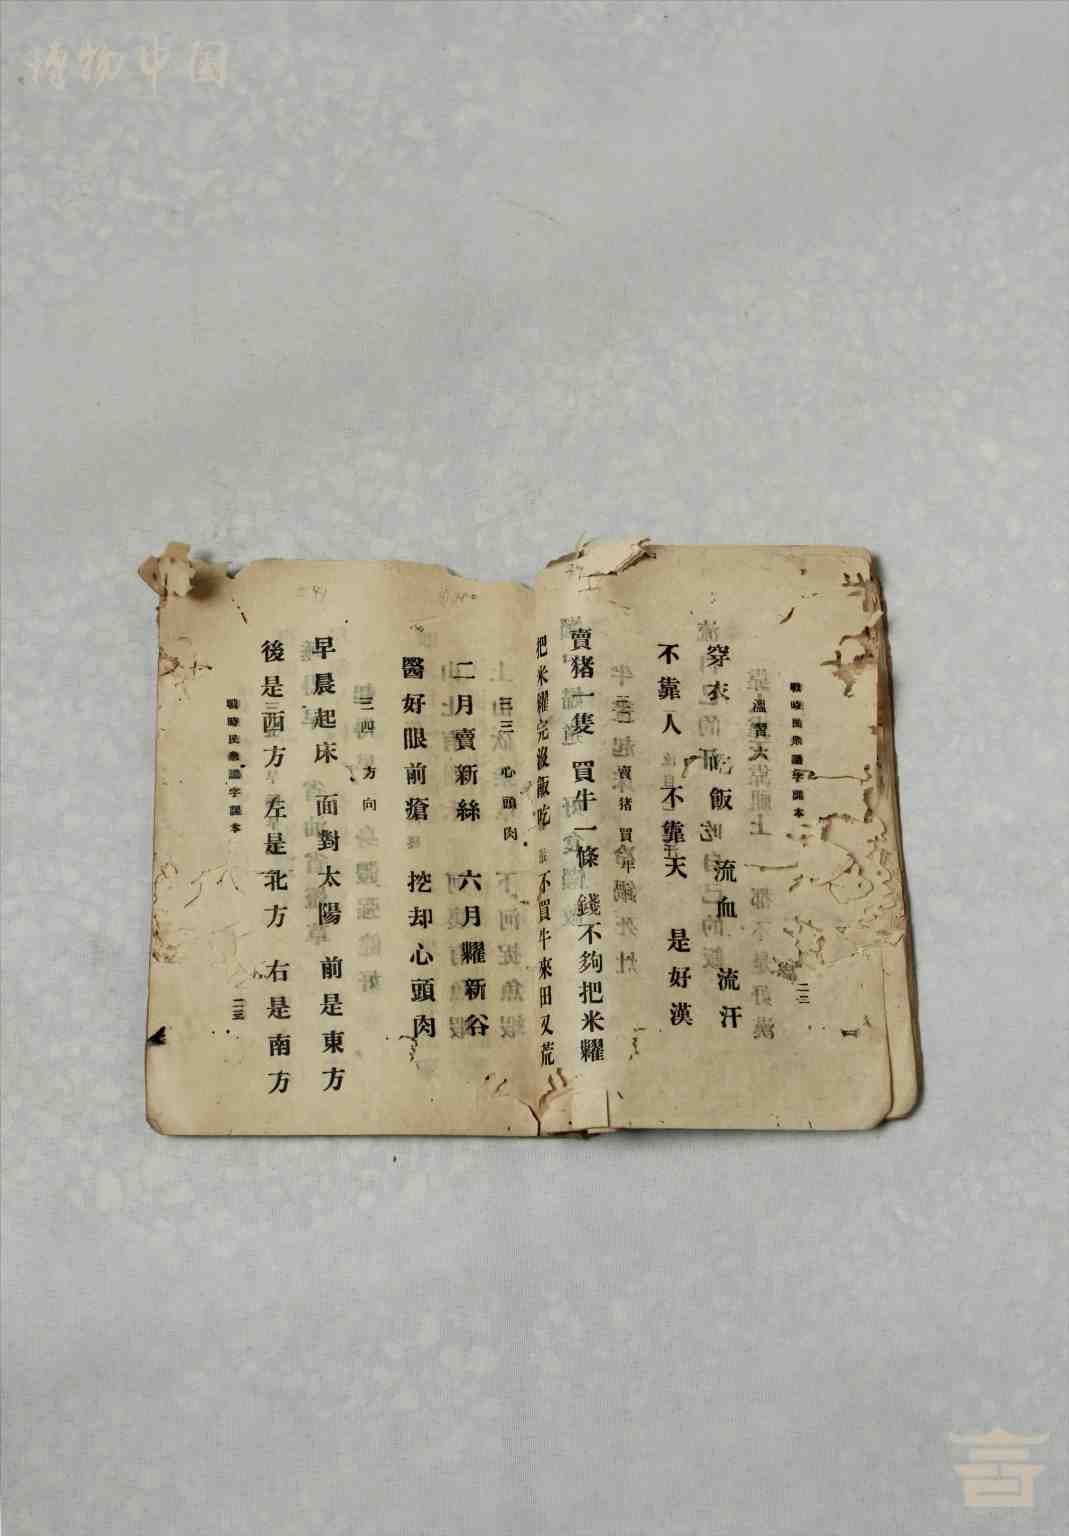 博物中国
戰時民衆識字課本
二二
溫習六
穿衣 吃飯 流血 流汗
不靠人 不靠天 是好漢
三二 賣猪買牛
賣猪一隻 買牛一條 錢不夠把米糶
把米糶完沒飯吃 不買牛來田又荒
三三 心頭肉
二月賣新絲 六月糶新谷
醫好眼前瘡 挖却心頭肉
三四 方向
早晨起床 面對太陽 前是東方
後是西方 左是北方 右是南方
戰時民衆識字課本
二三